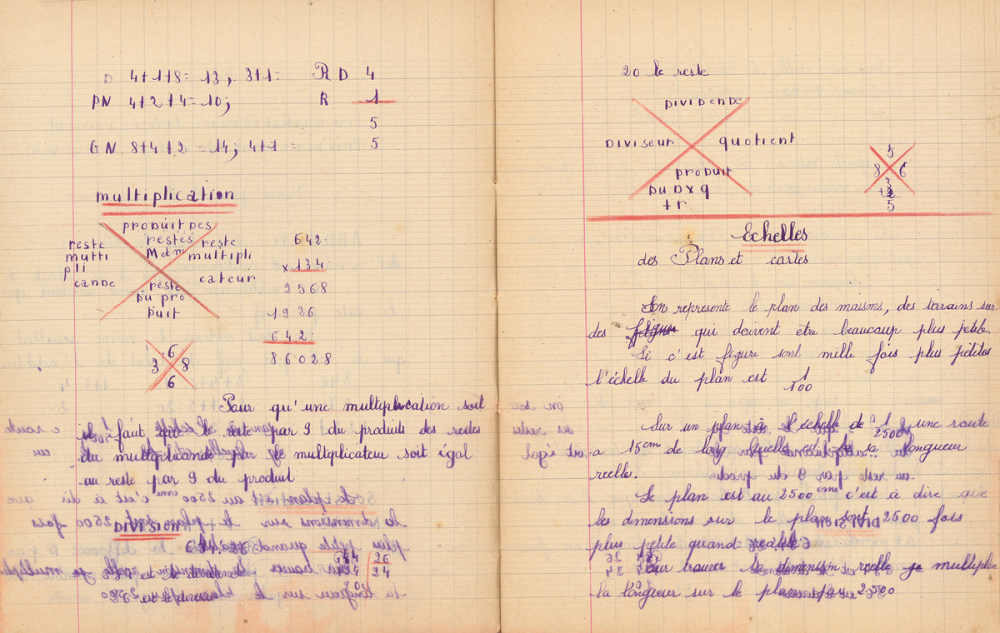 D 4+1+8= 13, 3+1= R D 4
PN 4+2+4=10; R 1
5
GN 8+4+2 =14; 4+1= 5
multiplication
produit des
restes
Mdm
reste
multi
pli
cande
reste
multipli
cateur
reste
du pro
duit
6
3 8
6
642
x134
2568
1926
642
86028
Pour qu'une multiplication soit
il faut que le reste par 9 du produits des restes
du multiplicande par le multiplicateur soit égal
au reste par 9 du produit
DIVISION
20 le reste
DIVIDENDE
DIVISEUR quotient
produit
DU D x q
+ r
5
8 6
3
+2
5
Echelles
des Plans et cartes
On represente le plan des maisons, des terrains sur
des qui doivent être beaucoup plus petits.
Si c'est figure sont mille fois plus petites
l'échelle du plan est 1/100
Sur un plan à l'échelle de 1/2500 une route
a 15cm de long. Quelle est la longueur
reelle.
Le plan est au 2500 eme c'est à dire que
les dimensions sur le plan sont 2500 fois
plus petite quand reelle
Pour trouver la dimension reelle je multiplie
la longueur sur le plan par 2500